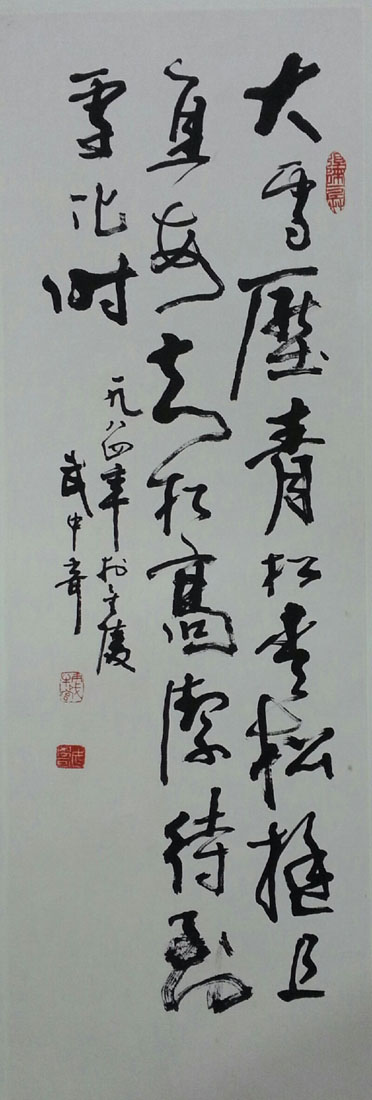 大雪壓青松青松挺且
直要知松高潔待到
雪化時
一九八四年於金陵
武中奇